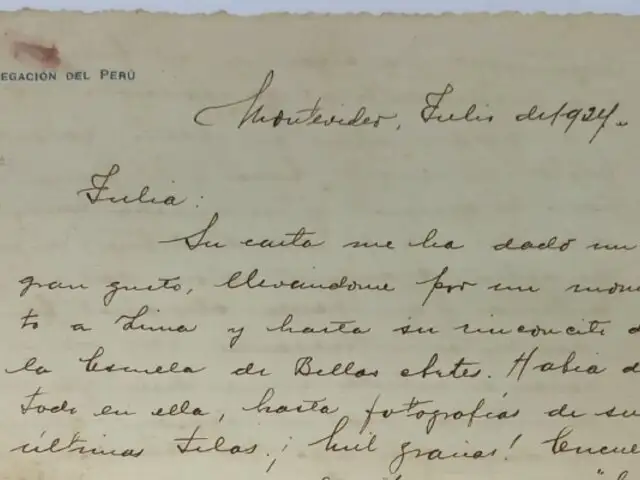 EGACIÓN DEL PERÚ
Montevideo, Julio de 1924.
Julia:
Su carta me ha dado un
gran gusto, llevandome por un mom
to a Lima y hasta su rinconcito d
la Escuela de Bellas Artes. Habia d
todo en ella, hasta fotografías de su
últimas telas. ¡Mil gracias! Encue